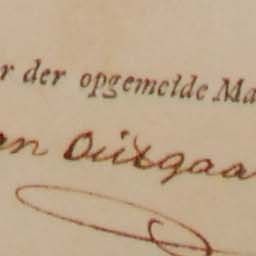 r der opgemelde Ma
en Ouitgaa